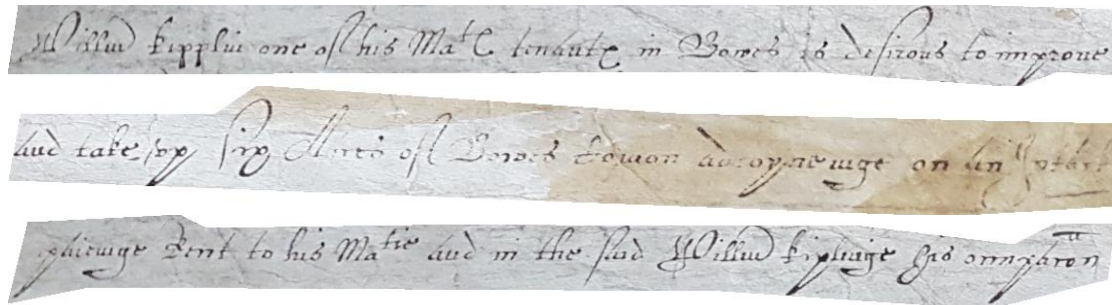 Willm Kipplin one of his Mats tenants in Bowes is desirous to improve
and take vp six Acres of Bowes Comon adioyneinge on an Intack
paieinge Rent to his Matie and in the said Willm Kiplinge his